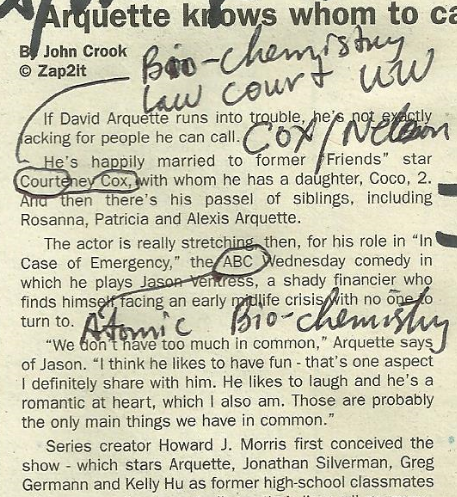 Arquette knows whom to ca
By John Crook
© Zap2it
Bio-chemistry
law court UW
If David Arquette runs into trouble, he's not exactly
lacking for people he can call.
Cox/Nelson
He's happily married to former "Friends" star
Courteney Cox, with whom he has a daughter, Coco, 2.
And then there's his passel of siblings, including
Rosanna, Patricia and Alexis Arquette.
The actor is really stretching, then, for his role in "In
Case of Emergency," the ABC Wednesday comedy in
which he plays Jason Ventress, a shady financier who
finds himself facing an early midlife crisis with no one to
turn to.
Atomic Bio-chemistry
"We don't have too much in common," Arquette says
of Jason. "I think he likes to have fun - that's one aspect
I definitely share with him. He likes to laugh and he's a
romantic at heart, which I also am. Those are probably
the only main things we have in common."
Series creator Howard J. Morris first conceived the
show - which stars Arquette, Jonathan Silverman, Greg
Germann and Kelly Hu as former high-school classmates